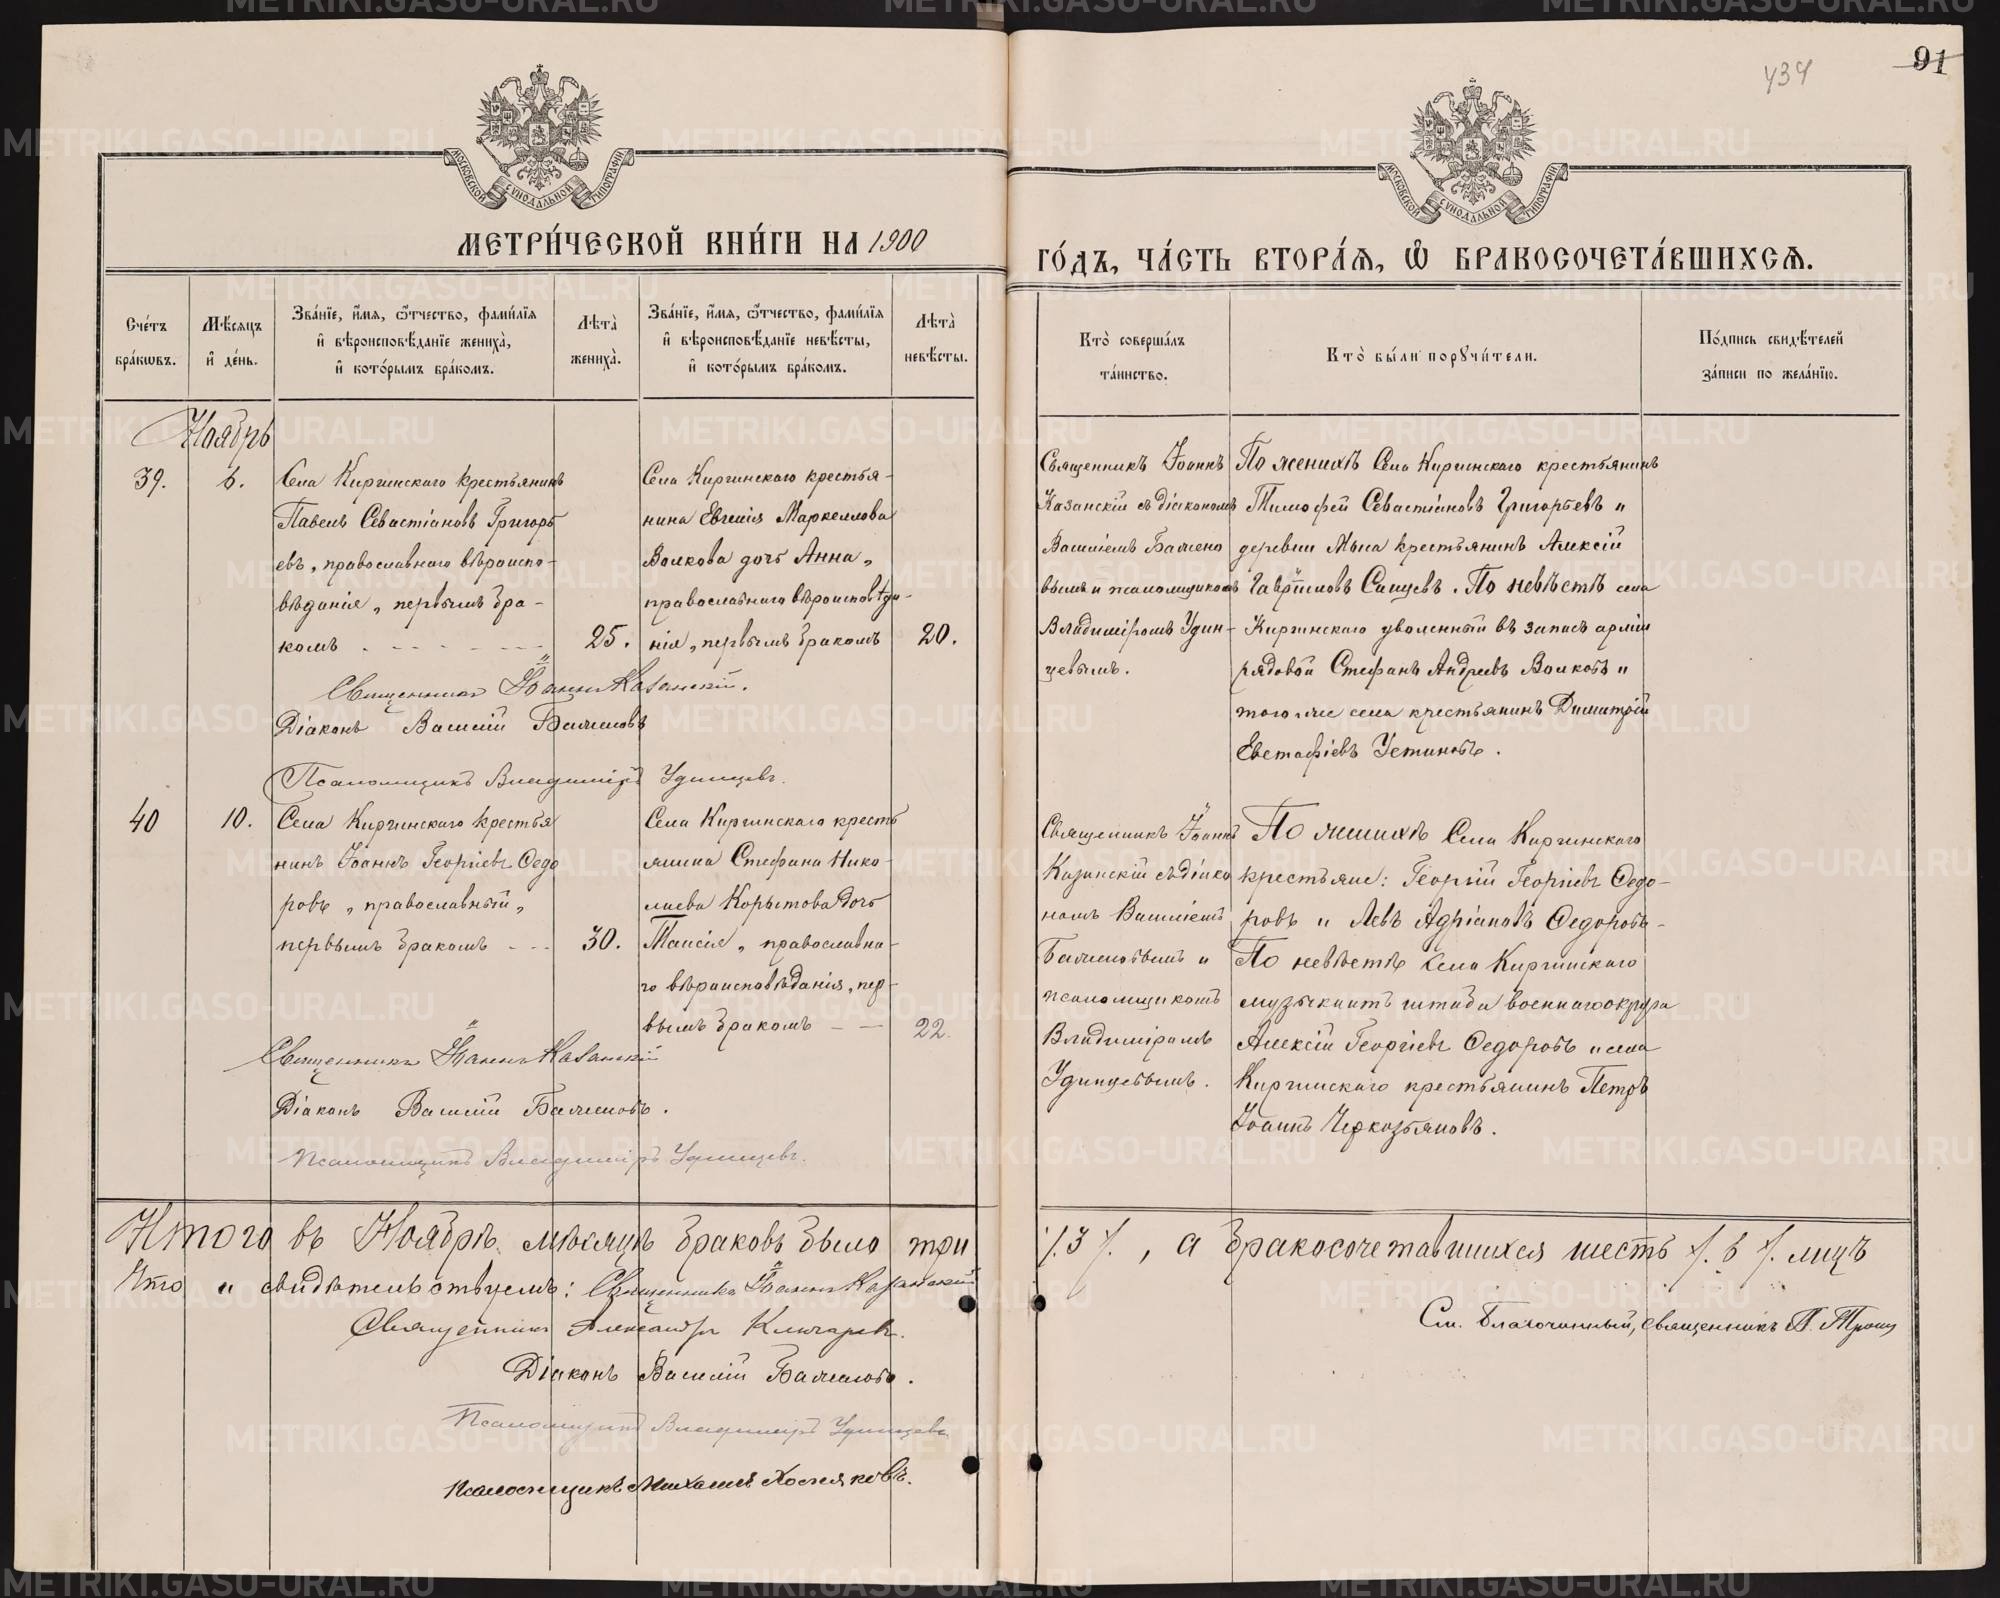 91
434
МОСКОВСКОЙ СѴНОДАЛЬНОЙ ТИПОГРАФІИ
МОСКОВСКОЙ СѴНОДАЛЬНОЙ ТИПОГРАФІИ
МЕТРИ́ЧЕСКОЙ КНИ́ГИ НА 1900
ГО́ДЪ, ЧА́СТЬ ВТОРА́Ѧ, Ѽ БРАКОСОЧЕТА́ВШИХСѦ.
Сче́тъ бра́кѡвъ.
Мѣ́сѧцъ и҆ де́нь.
Зва́нїе, и҆́мѧ, ѻ҆́тчество, фами́лїѧ
и҆ вѣроисповѣ́данїе жениха̀,
и҆ кото́рымъ бра́комъ.
Лѣта̀ жениха̀.
Зва́нїе, и҆́мѧ, ѻ҆́тчество, фами́лїѧ
и҆ вѣроисповѣ́данїе невѣ́сты,
и҆ кото́рымъ бра́комъ.
Лѣта̀ невѣ́сты.
Кто̀ соверша́лъ та́инство.
Кто̀ бы́ли порꙋчи́тели.
По́дпись свидѣ́телей за́писи по жела́нїю.
Ноябрь
39.
6.
Села Киргинскаго крестьянинъ
Павелъ Севастіановъ Григорь
евъ, православнаго вѣроиспо-
вѣданія, первымъ бра-
комъ
25.
Села Киргинскаго крестья-
нина Евгенія Маркеллова
Волкова дочь Анна,
православнаго вѣроисповѣда-
нія, первымъ бракомъ
20.
Священникъ Іоаннъ
Казанскій съ діакономъ
Василіемъ Бажено
вымъ и псаломщикомъ
Владиміромъ Удин-
цевымъ.
По женихѣ села Киргинскаго крестьянинъ
Тимофей Севастіановъ Григорьевъ и
деревни Мыса крестьянинъ Алексій
Гавріиловъ Санцевъ. По невѣстѣ села
Киргинскаго уволенный въ запасъ арміи
рядовой Стефанъ Андреевъ Волковъ и
того же села крестьянинъ Димитрій
Евстафіевъ Устиновъ.
Священникъ Іоаннъ Казанскій.
Діаконъ Василій Баженовъ
Псаломщикъ Владиміръ Удинцевъ.
40
10.
Села Киргинскаго крестья
нинъ Іоаннъ Георгіевъ Ѳедо
ровъ, православный,
первымъ бракомъ
30.
Села Киргинскаго кресть
янина Стефана Нико-
лаева Корытова дочь
Таисія, православна-
го вѣроисповѣданія, пер-
вымъ бракомъ
22.
Священникъ Іоаннъ
Казанскій съ діако
номъ Василіемъ
Баженовымъ и
псаломщикомъ
Владиміромъ
Удинцевымъ.
По женихѣ села Киргинскаго
крестьяне: Георгій Георгіевъ Ѳедо-
ровъ и Левъ Адріановъ Ѳедоровъ-
По невѣстѣ села Киргинскаго
музыкантъ штаба военнаго округа
Алексій Георгіевъ Ѳедоровъ и села
Киргинскаго крестьянинъ Петръ
Іоаннъ Черкозьяновъ.
Священникъ Іоаннъ Казанскій
Діаконъ Василій Баженовъ.
Псаломщикъ Владиміръ Удинцевъ.
Итого въ Ноябрѣ мѣсяцѣ браковъ было три /.3/., а бракосочетавшихся шесть /.6/. лицъ
Что и свидѣтельствуемъ: Священникъ Іоаннъ Казанскій
Священникъ Александръ Ключаревъ.
Діаконъ Василій Баженовъ.
Псаломщикъ Владиміръ Удинцевъ
псаломщикъ Михаилъ Хомяковъ.
См. Благочинный, священникъ П. Троиц
METRIKI.GASO-URAL.RU